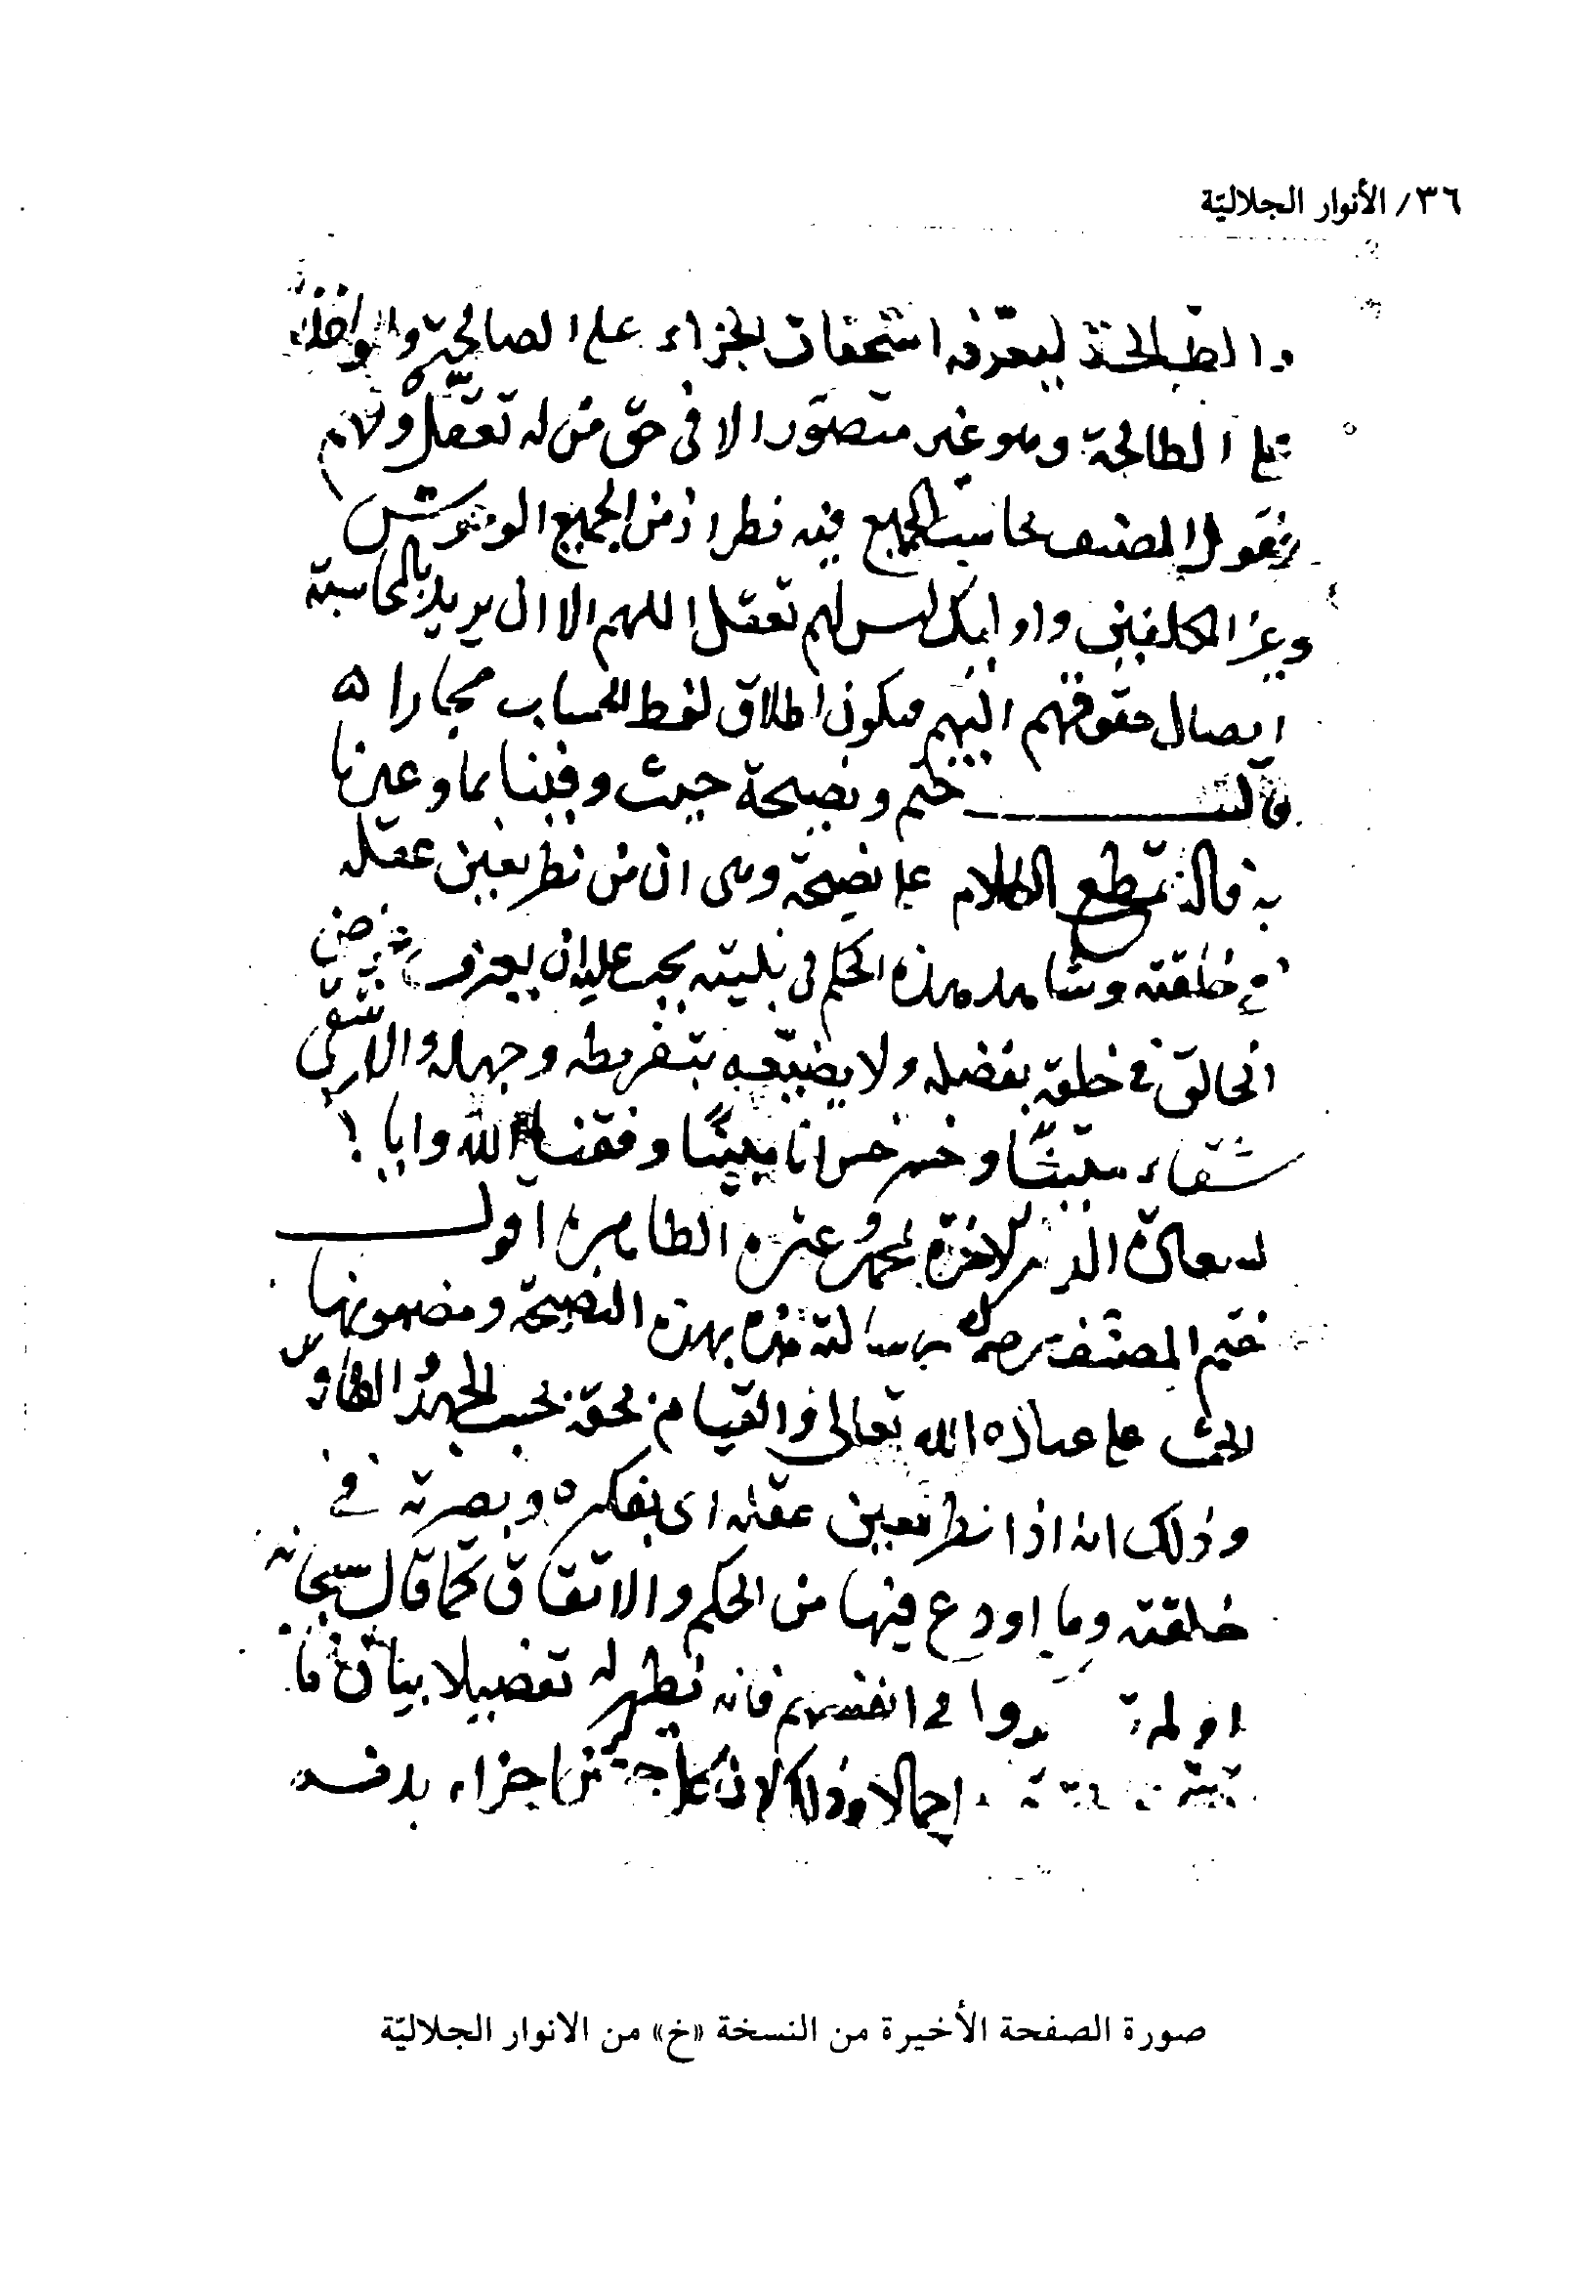 ٣٦/ الأنوار الجلاليّة
والطالحة ليعرفه استحقاق الجزاء على الصالحة والمؤاخذة
على الطالحة وهو غير متصوّر الا فى حق من له تعقّل
فقول المصنف محاسب الجميع فيه نظر اذ من الجميع الوحوش
وغير المكلفين واولئك ليس لهم تعقل اللهم الا ان يريد بالمحاسبة
ايصال حقوقهم اليهم فيكون اطلاق لفظ الحساب مجازا
قال ختم ونصيحة حيث وفينا بما وعدنا
به فالنقطع الكلام على نصيحة وهى ان من نظر بعين عقله
فى خلقته وشاهد هذه الحكم فى بنيته يجب عليه ان يعرف غرض
الخالق فى خلقه بفضله ولا يضيّعه بتفريطه وجهله والا شقى
شقاء وخسر خسرانا مبينا وفقنا الله وايا
لسعادة الدنيا والاخرة بمحمد وعترته الطاهرة اقول
ختم المصنف رسالته هذه بهذه النصيحة ومضمونها
الحث على عبادة الله تعالى والقيام بحقه بحسب الجهد والطاقة
وذلك انه اذا نظر بعين عقله اى بفكره وبصيرته فى
خلقته وما اودع فيها من الحكم والاتقان كما قال سبحانه
اولم فى انفسهم فانه تظهر له تفصيلا
اجمالا وذلك لان كل جزء من اجزاء بدنه
صورة الصفحة الأخيرة من النسخة «خ» من الانوار الجلاليّة